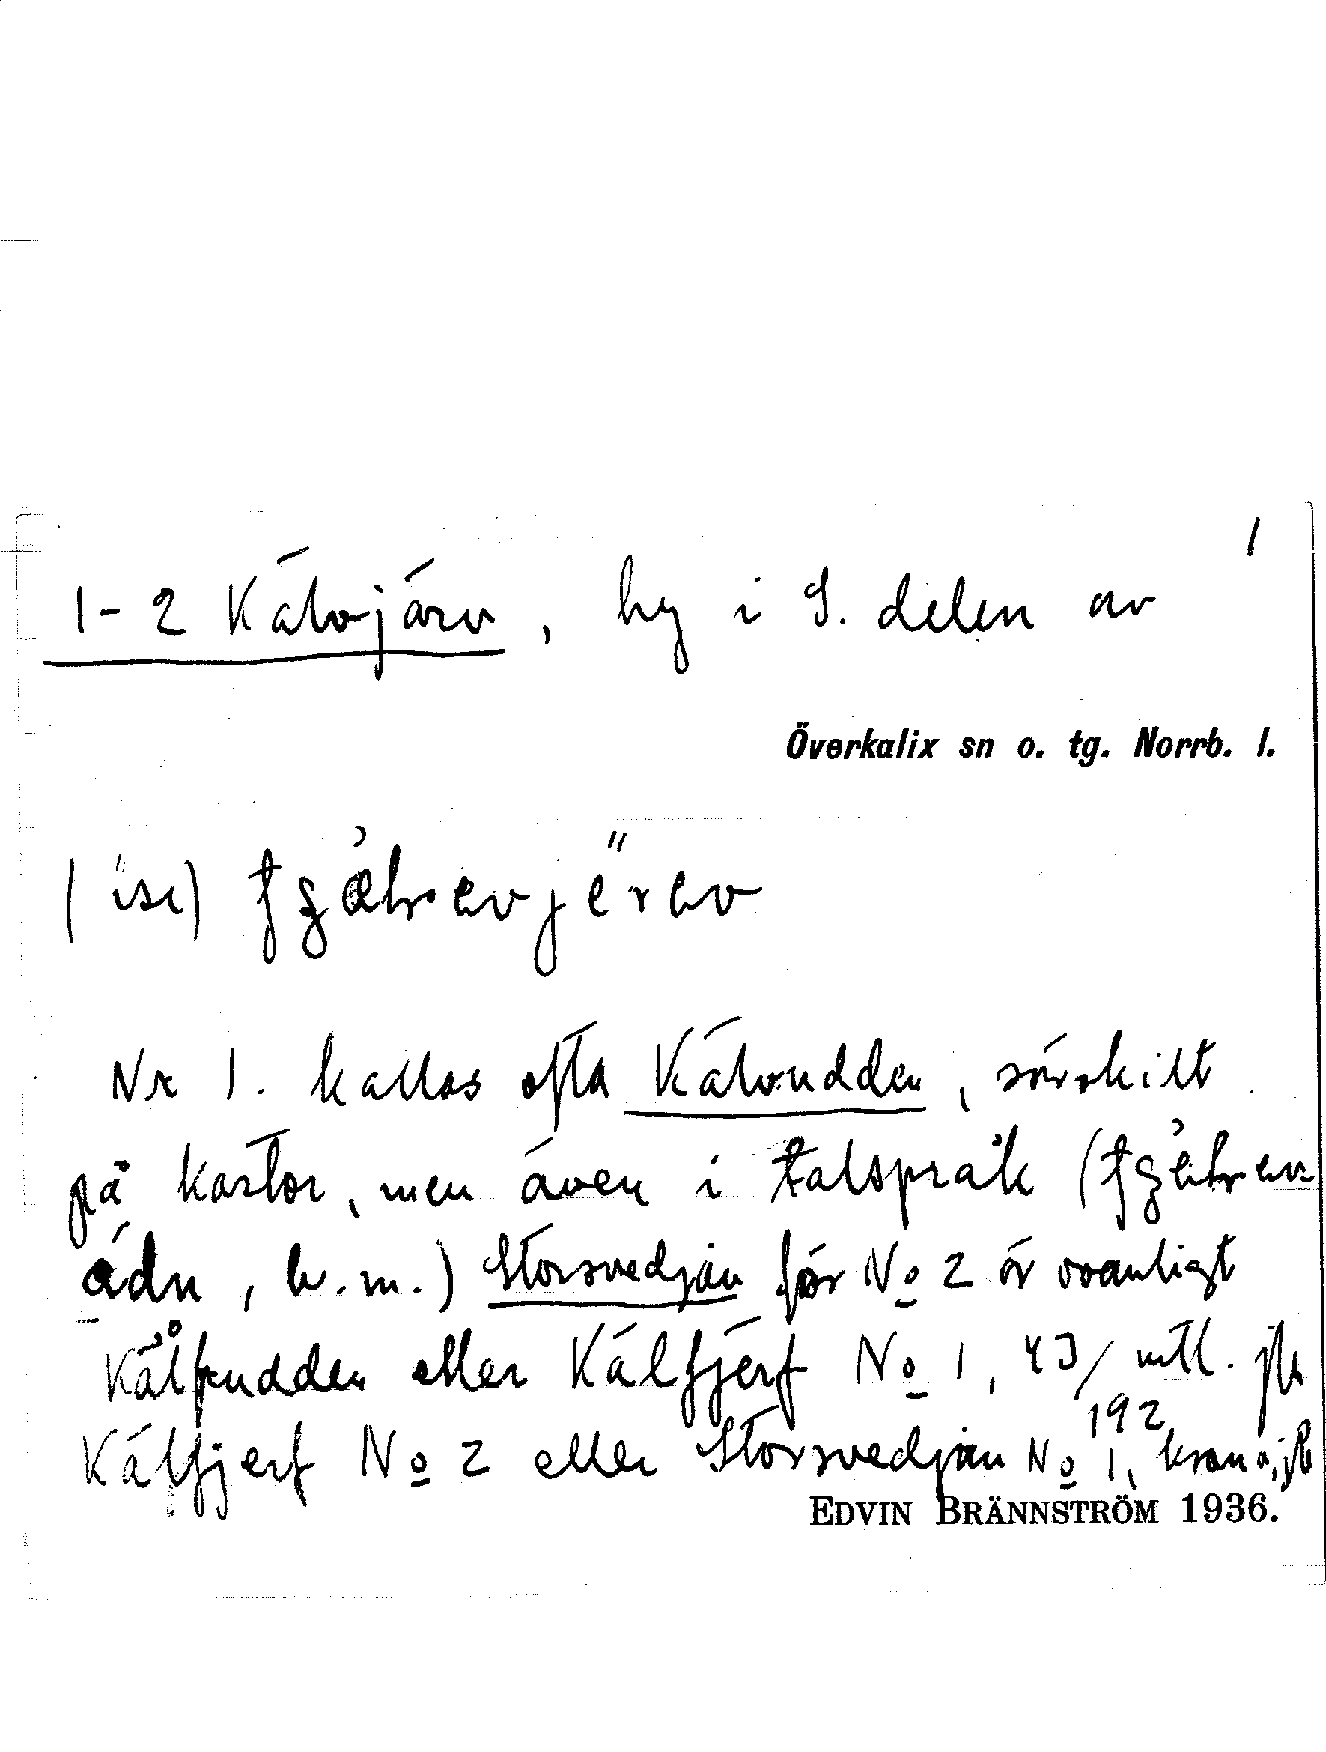 1
1-2 Kälvjärv, by i S. delen av
Överkalix sn o. tg. Norrb. l.
Nr 1. kallas ofta Kälvudden, särskilt
på kartor, men även i talspråk
ádn, b.m.) Storsvedjan för No 2 är ovanligt
Kålfudden eller Kälfjerf No 1, 43/192 mtl.
Kälfjerf No 2 eller Storsvedjan No 1,
EDVIN BRÄNNSTRÖM 1936.